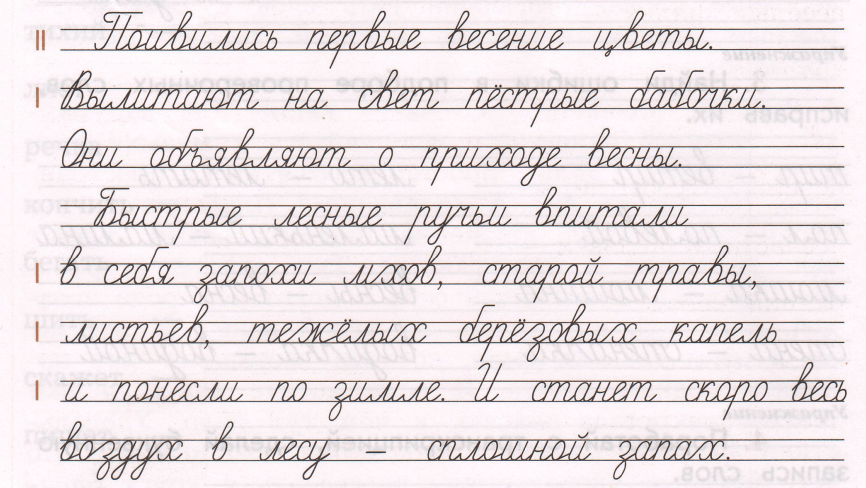 Поивились первые весение цветы.
Вылитают на свет пёстрые бабочки.
Они объявляют о приходе весны.
Быстрые лесные ручьи впитали
в себя запохи мхов, старой травы,
листьев, тежёлых берёзовых капель
и понесли по зимле. И станет скоро весь
воздух в лесу – сплошной запах.